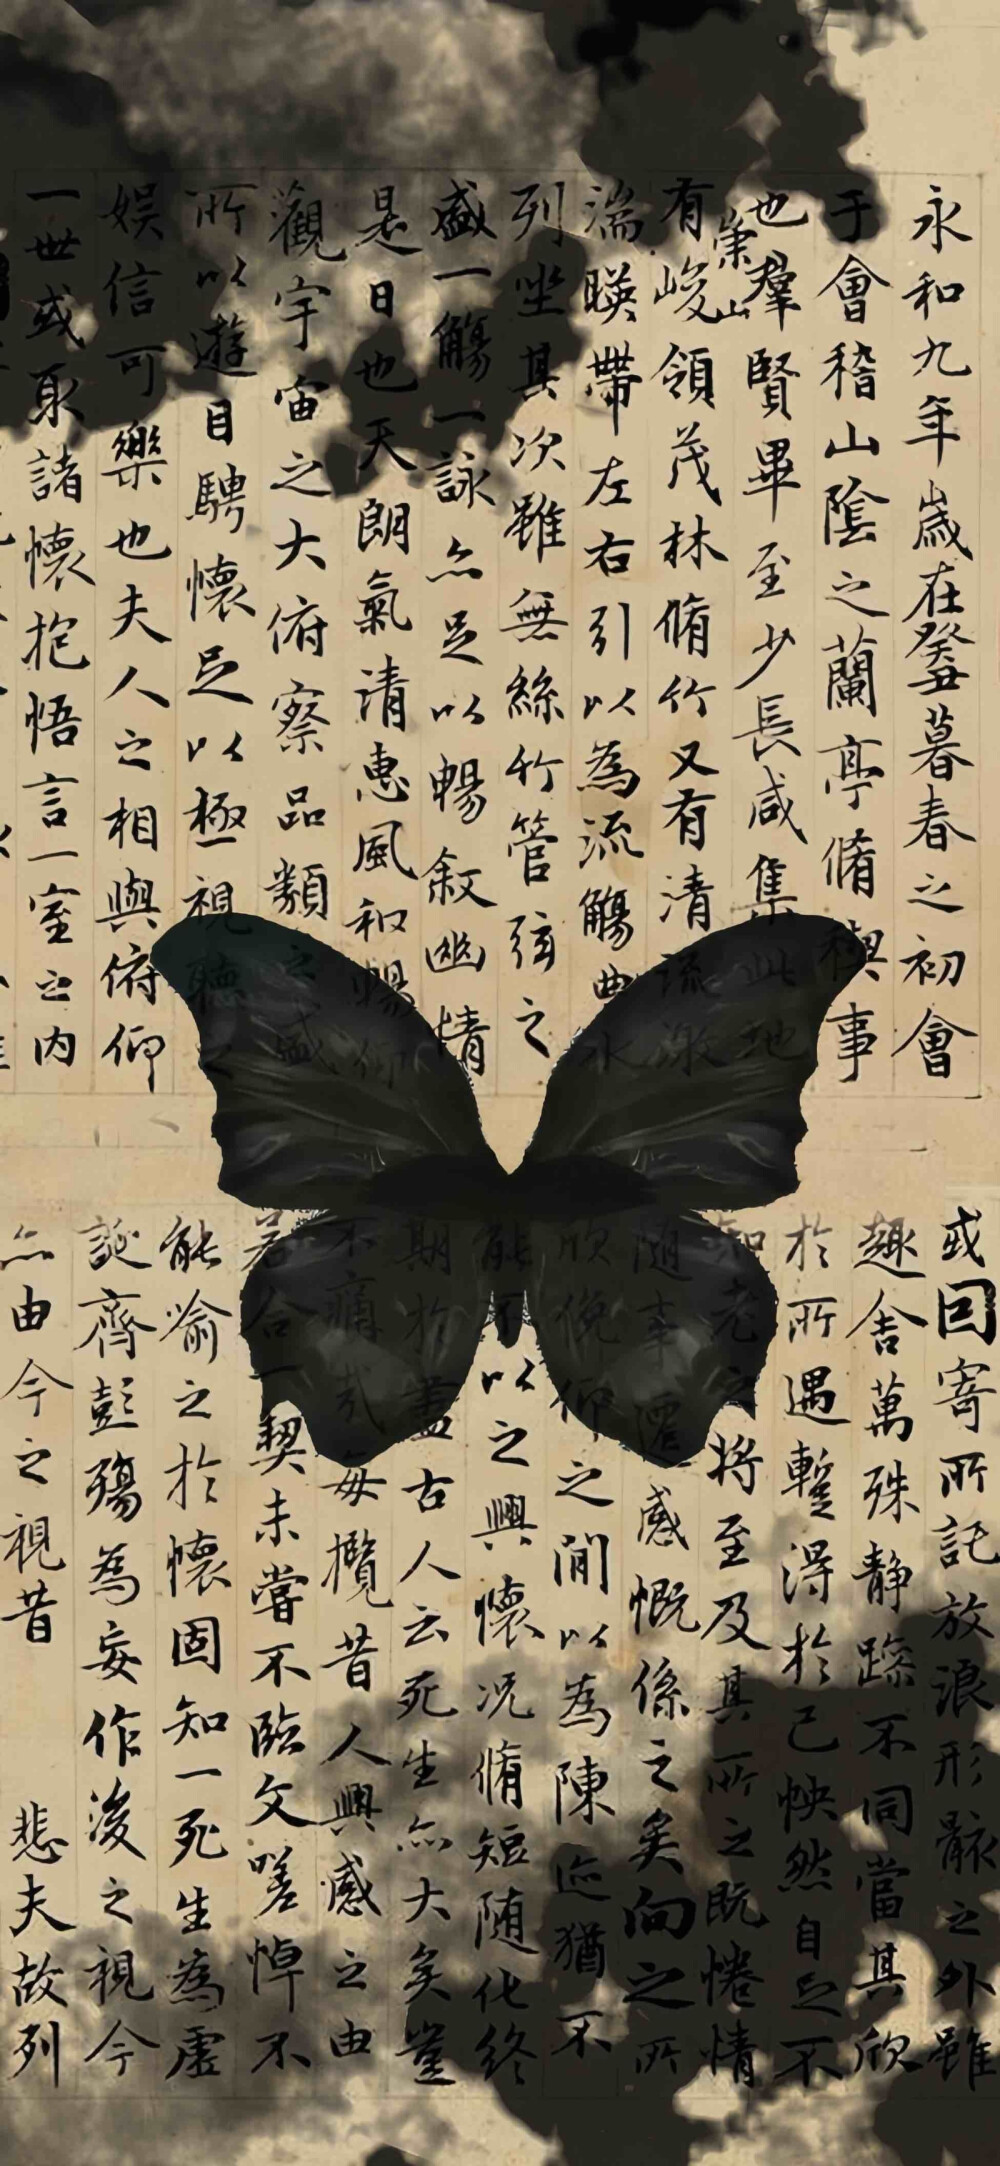 永和九年歲在癸丑暮春之初會
于會稽山陰之蘭亭脩禊事
也羣賢畢至少長咸集此地
崇山
有峻領茂林脩竹又有清流激
湍暎帶左右引以為流觴曲水
列坐其次雖無絲竹管弦之
盛一觴一詠亦足以暢敘幽情
是日也天朗氣清惠風和暢仰
觀宇宙之大俯察品類之盛
所以遊目騁懷足以極視聽之
娛信可樂也夫人之相與俯仰
一世或取諸懷抱悟言一室之内
或因寄所託放浪形骸之外雖
趣舍萬殊靜躁不同當其欣
於所遇蹔得於己怏然自足不
知老之將至及其所之既惓情
隨事遷感慨係之矣向之所
欣俛仰之閒以為陳迹猶不
能不以之興懷況脩短隨化終
期於盡古人云死生亦大矣豈
不痛哉每攬昔人興感之由
若合一契未嘗不臨文嗟悼不
能喻之於懷固知一死生為虛
誕齊彭殤為妄作後之視今
亦由今之視昔 悲夫故列